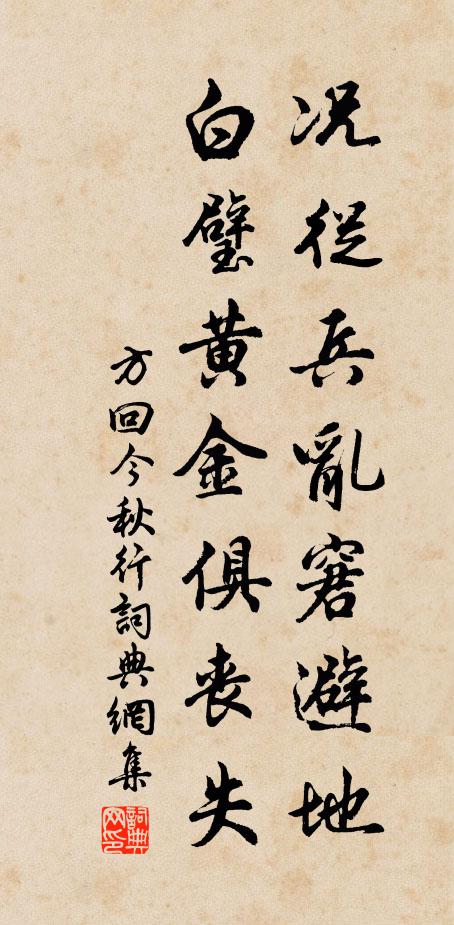 况從兵亂窘避地
白璧黃金俱喪失
方回今秋行詞典網集
詞典
网印